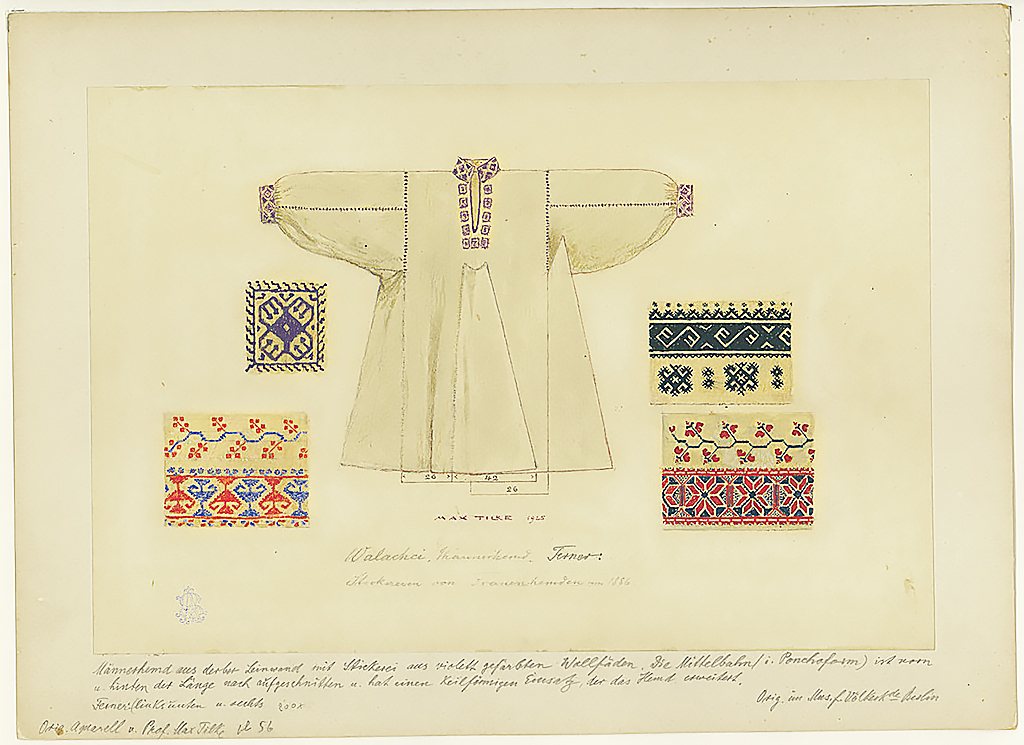 26 42
26
MAX TILKE 1925
Walachei. Männerhemd. Ferner:
Stickereien von Frauenhemden um 1886
Männerhemd aus derber Leinwand mit Stickerei aus violett gefärbten Wollfäden. Die Mittelbahn (i. Ponchoform) ist vorn
u. hinten der Länge nach aufgeschnitten u. hat einen keilförmigen Einsatz, der das Hemd erweitert.
Ferner: links unten u. rechts
Orig. im Mus. f. Völkerkde Berlin
Orig. Aquarell v. Prof. Max Tilke 56